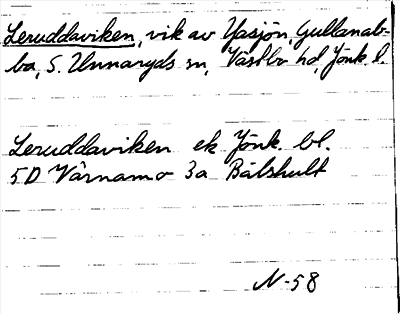 Leruddaviken, vik av Yasjön, Gullanab-
ba, S. Unnaryds sn, Västbo hd, Jönk. l.
Leruddaviken ek Jönk. bl.
5D Värnamo 3a Bälshult
N-58